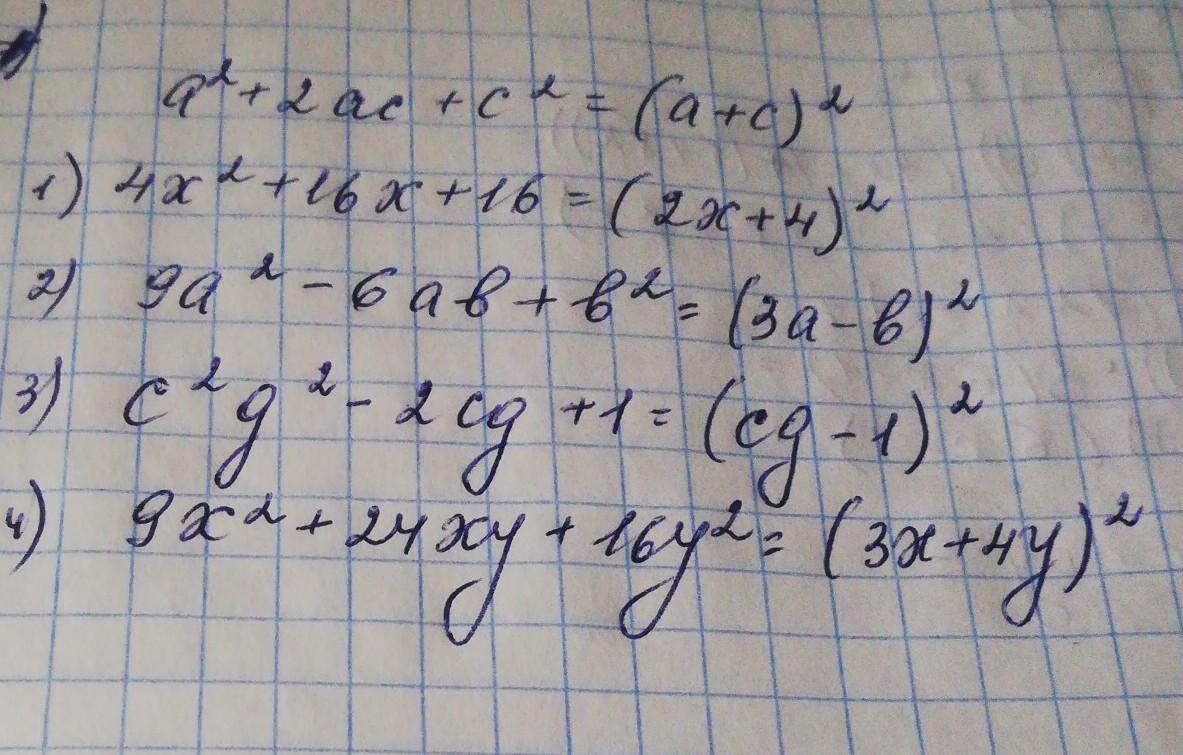 a² + 2ac + c² = (a + c)²
1) 4x² + 16x + 16 = (2x + 4)²
2) 9a² - 6ab + b² = (3a - b)²
3) c²g² - 2cg + 1 = (cg - 1)²
4) 9x² + 24xy + 16y² = (3x + 4y)²